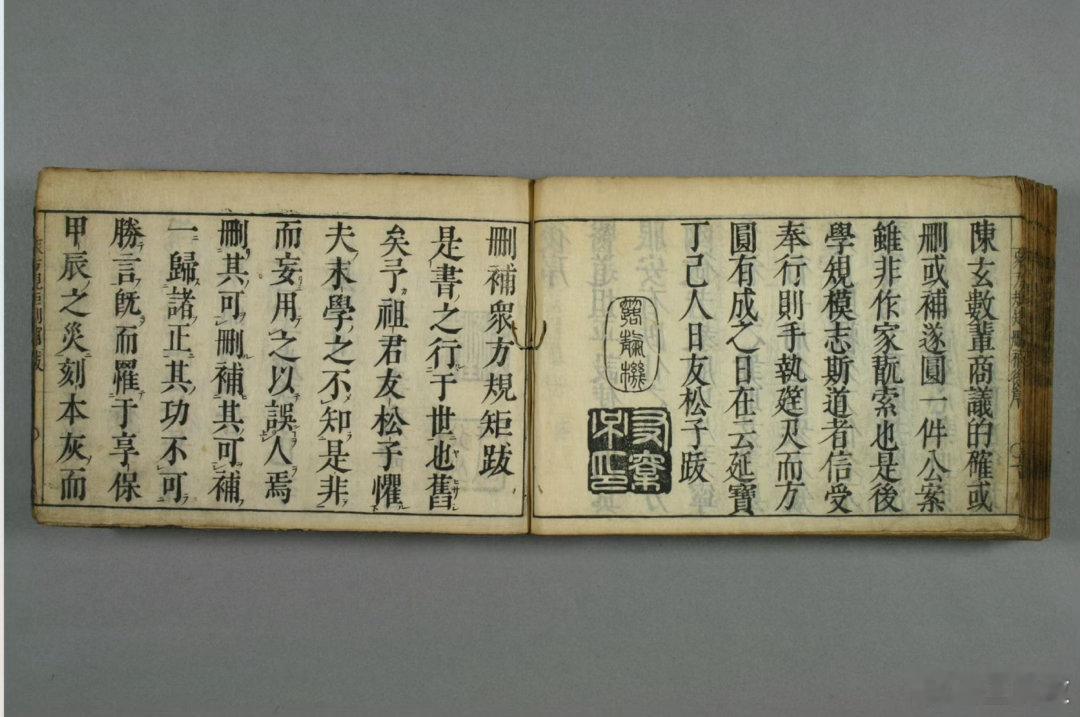 陳玄數輩商議的確或
刪或補遂圓一件公案
雖非作家翫索也是後
學規模志斯道者信受
奉行則手執寔尺而方
圓有成之日在云延寶
丁己人日友松子跋
刪補衆方規矩跋
是書之行于世也舊
矣予祖君友松子懼
夫末學之不知是非
而妄用之以誤人焉
刪其可刪補其可補
一歸諸正其功不可
勝言既而罹于享保
甲辰之災刻本灰而